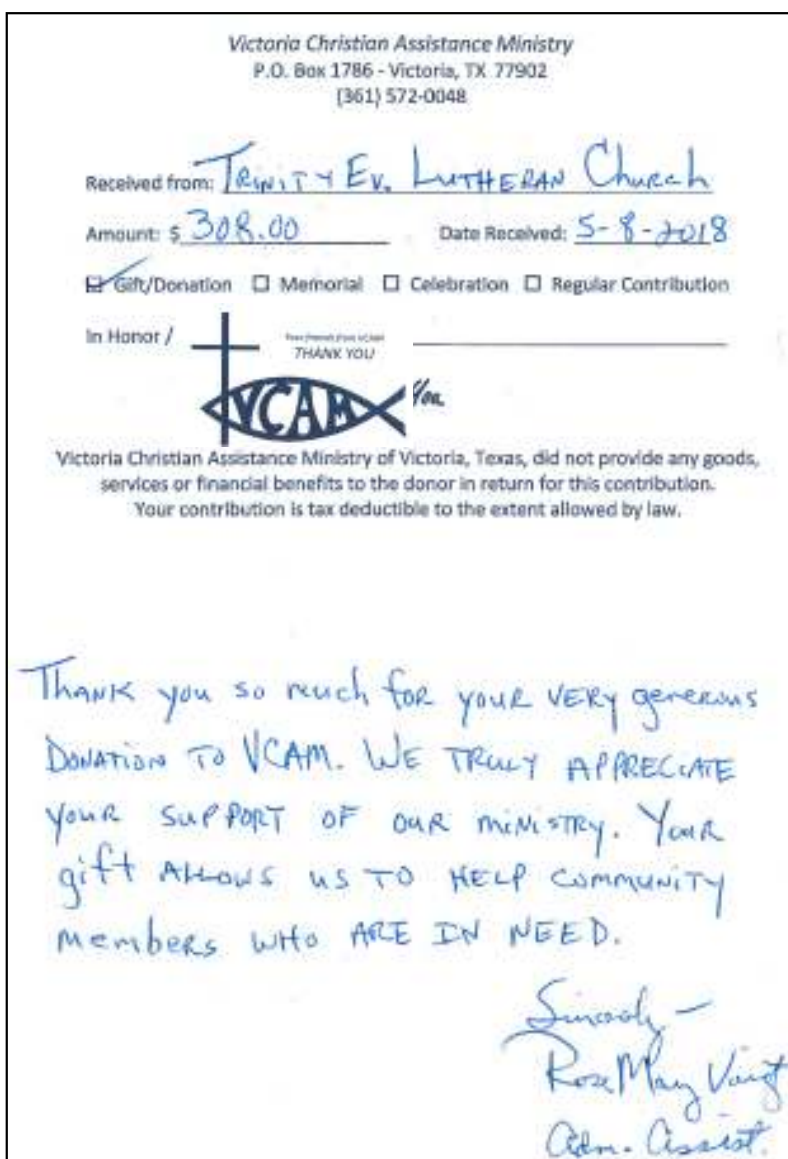 Victoria Christian Assistance Ministry
P.O. Box 1786 - Victoria, TX 77902
(361) 572-0048
Received from: TRINITY EV. LUTHERAN Church
Amount: $ 308.00 Date Received: 5-8-2018
Gift/Donation Memorial Celebration Regular Contribution
In Honor /
THANK YOU
VCAM
You
Victoria Christian Assistance Ministry of Victoria, Texas, did not provide any goods,
services or financial benefits to the donor in return for this contribution.
Your contribution is tax deductible to the extent allowed by law.
THANK you so much for your VERY generous
DONATION TO VCAM. WE TRULY APPRECIATE
your SUPPORT OF OUR MINISTRY. Your
gift ALLOWS US TO HELP COMMUNITY
members WHO ARE IN NEED.
Sincerely -
Rose Mary
Adm. Assist.